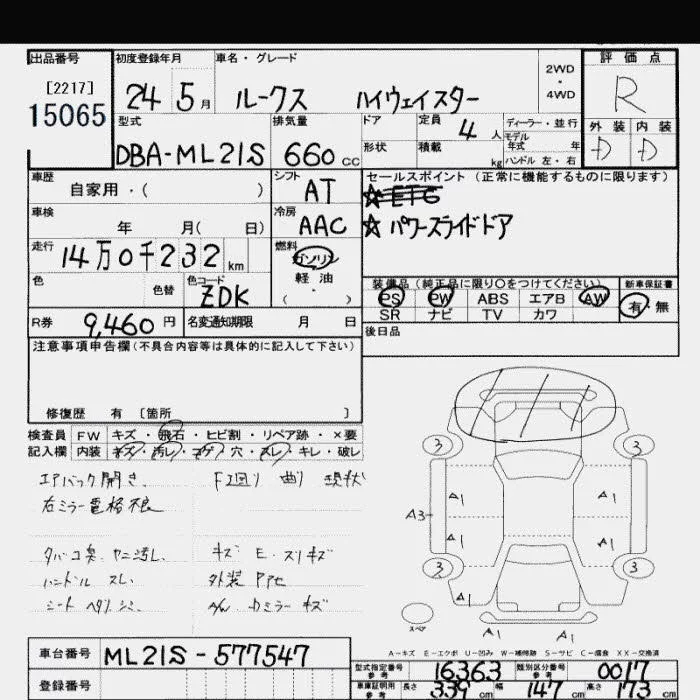 出品番号 初度登録年月 車名・グレード 2WD・4WD 評価点
[2217]
15065 24 5月 ルークス ハイウェイスター R
型式 排気量 ドア 定員 4人 ディーラー・並行 外装 内装
モデル年式 年
DBA-ML21S 660cc 形状 積載 kg ハンドル 左・右 D D
車歴 シフト セールスポイント(正常に機能するものに限ります)
自家用・( ) AT ☆ETC
車検 冷房 ☆パワースライドドア
年 月( 日) AAC
走行 燃料
14万0千232km ガソリン
軽油
( ・ )
色 色替 色コード ZDK
装備品(純正品に限り○をつけてください) 新車保証書
PS PW ABS エアB AW 有・無
SR ナビ TV カワ
R券 9,460円 名変通知期限 月 日
後日品
注意事項申告欄(不具合内容等は具体的に記入して下さい)
修復歴 有 〔箇所 〕
検査員 FW キズ・飛石・ヒビ割・リペア跡・×要
記入欄 内装 キズ・汚レ・コゲ・穴・スレ・キレ・破レ
エアバック開き F廻り 曲り 現状
右ミラー電格不良
タバコ臭 ヤニ汚し キズ E スリキズ
ハンドル スレ 外装
シート ヘタリ シミ A/W Dミラー キズ
3 3
A1 A1
A3
A1 A1
3 3
A1
スペア
A1 A1
A-キズ E-エクボ U-凹み W-補修跡 S-サビ C-腐食 XX-交換済
車台番号 ML21S-577547
型式指定番号 参考 16363 類別区分番号 参考 0017
登録番号 車庫証明用 参考 長さ 339cm 幅 147cm 高さ 173cm